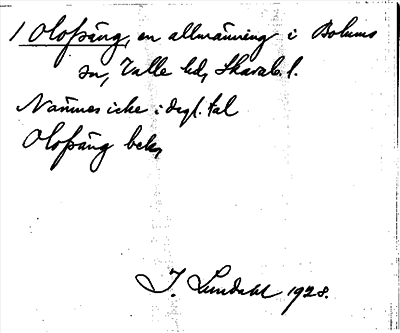 1 Olofsäng, en allmänning i Bolums
sn, Valle hd, Skarab. l.
Nämnes icke i dagl. tal
Olofsäng bek,
I. Lundahl 1928.